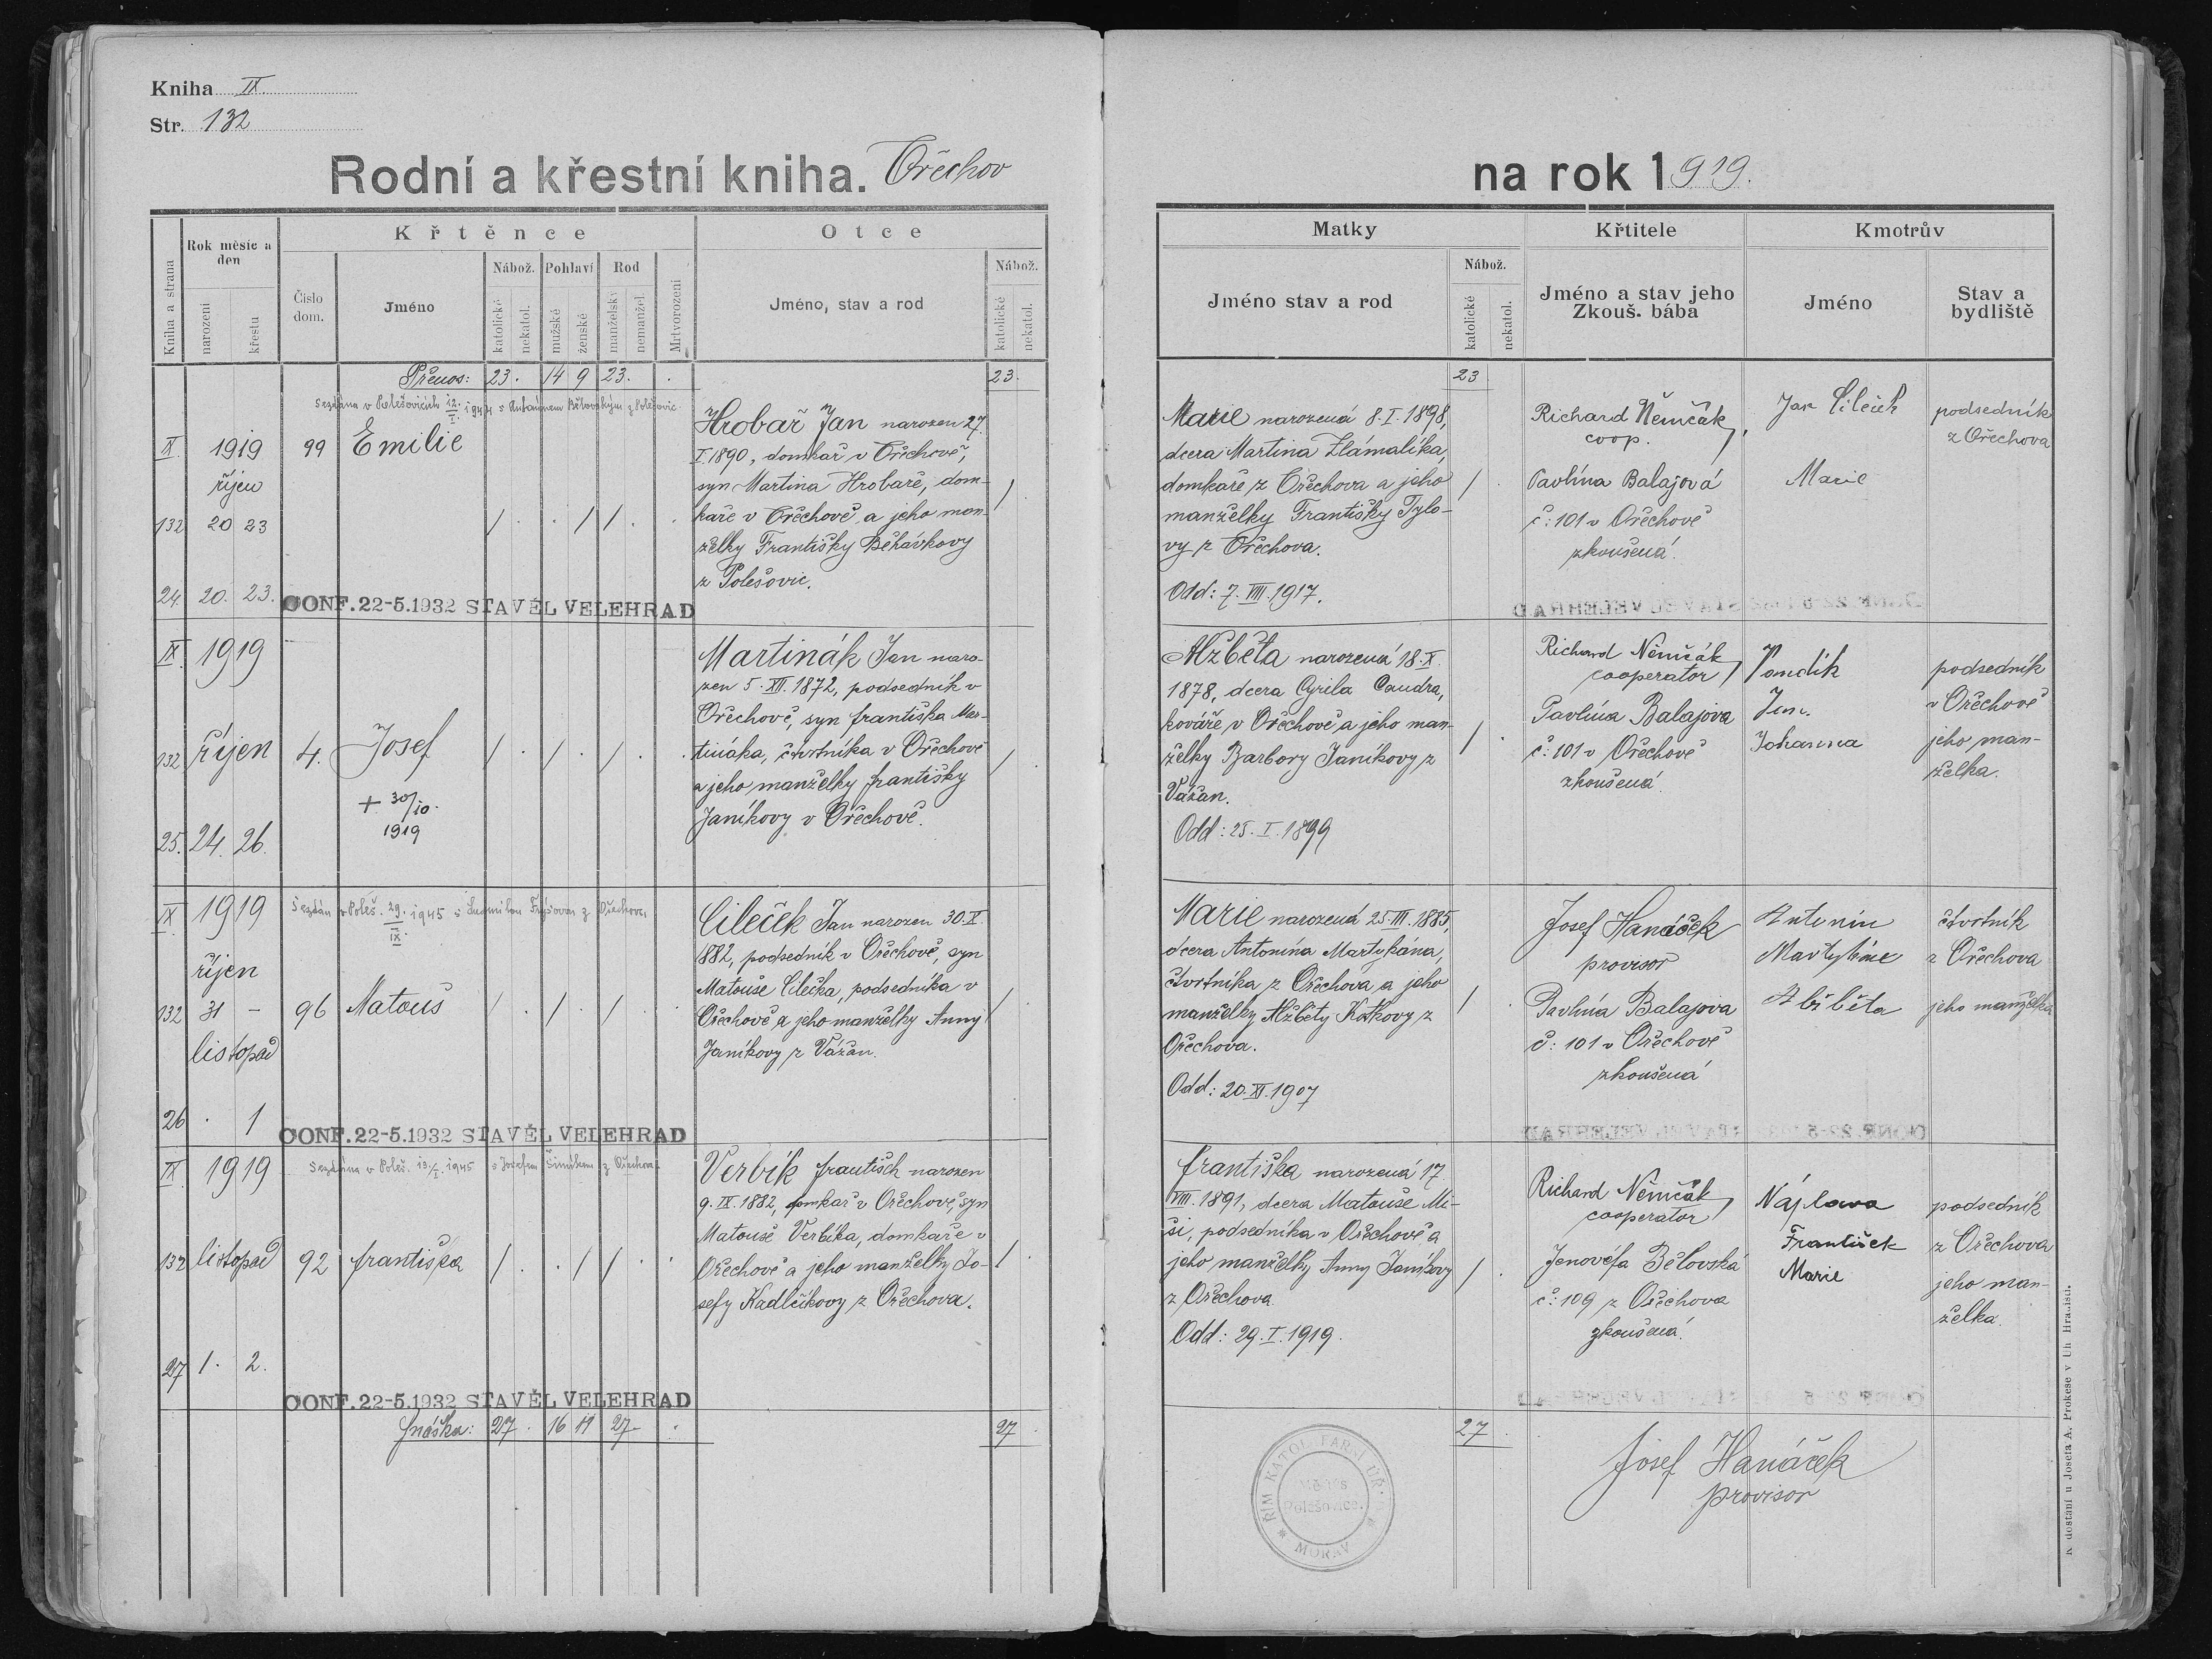 Kniha IX.
Str. 132
Rodní a křestní kniha. Ořechov
na rok 1919.
Kniha a strana
Rok měsíc a den
narození
křestu
Křtěnce
Číslo dom.
Jméno
Nábož.
katolické
nekatol.
Pohlaví
mužské
ženské
Rod
manželský
nemanžel.
Mrtvorození
Otce
Jméno, stav a rod
Nábož.
katolické
nekatol.
Matky
Jméno stav a rod
Nábož.
katolické
nekatol.
Křtitele
Jméno a stav jeho
Zkouš. bába
Kmotrův
Jméno
Stav a bydliště
Přenos: 23. 14 9 23. . 23. 23
Sezdána v Polešovicích 12. I. 1944 s Antonínem Bělovským z Polešovic.
IX. 1919 99 Emilie
říjen
132 20 23 / . . / / . .
24. 20. 23.
CONF. 22-5.1932 STAVĚL VELEHRAD
Hrobař Jan narozen 27.
I. 1890, domkař v Ořechově,
syn Martina Hrobaře, dom-
kaře v Ořechově a jeho man-
želky Františky Běhávkovy
z Polešovic.
Marie narozená 8. I. 1898,
dcera Martina Zlámalíka,
domkaře z Ořechova a jeho
manželky Františky Tylo-
vy z Ořechova.
Odd: 7. VIII. 1917.
Richard Němčák,
coop.
Pavlína Balajová
č: 101 v Ořechově
zkoušená.
Jan Cileček
Marie
podsedník
z Ořechova
IX. 1919
132 říjen 4. Josef / . / . / . .
+ 30/10.
1919
25. 24. 26.
Martinák Jan naro-
zen 5. XII. 1872, podsedník v
Ořechově, syn Františka Mar-
tináka, čtvrtníka v Ořechově
a jeho manželky Františky
Janíkovy v Ořechově.
Alžběta narozená 18. X.
1878, dcera Cyrila Caudra,
kováře v Ořechově a jeho man-
želky Barbory Janíkovy z
Vážan.
Odd: 25. I. 1899
Richard Němčák
cooperator
Pavlína Balajova
č: 101 v Ořechově
zkoušená.
Vandík
Jan.
Johanna
podsedník
v Ořechově
jeho man-
želka.
IX. 1919
Sezdán v Poleš. 29. IX. 1945 s Ludmilou z Ořechova.
říjen
132 31 - 96 Matouš / . / . / . .
listopad
26 . 1
CONF. 22-5.1932 STAVĚL VELEHRAD
Cileček Jan narozen 30. X.
1882, podsedník v Ořechově, syn
Matouše Cilečka, podsedníka v
Ořechově a jeho manželky Anny
Janíkovy z Vážan.
Marie narozená 25. III. 1885,
dcera Antonína Martykána,
čtvrtníka z Ořechova a jeho
manželky Alžběty Kotkovy z
Ořechova.
Odd: 20. XI. 1907
Josef Hanáček
provisor
Pavlína Balajova
č: 101 v Ořechově
zkoušená
Antonín
Martykán
Alžběta
čtvrtník
z Ořechova
jeho manželka
IX. 1919
Sezdána v Poleš. 13./I. 1945 s Josefem Šimíkem z Ořechova.
132 listopad 92 Františka / . . / / . .
27 1. 2.
CONF. 22-5.1932 STAVĚL VELEHRAD
Verbík František narozen
9. IX. 1882, domkař v Ořechově, syn
Matouše Verbíka, domkaře v
Ořechově a jeho manželky Jo-
sefy Kadlčíkovy z Ořechova.
Františka narozená 17.
VIII. 1891, dcera Matouše Mi-
ši, podsedníka v Ořechově a
jeho manželky Anny Janíkovy
z Ořechova.
Odd: 29. I. 1919.
Richard Němčák,
cooperator
Jenovéfa Bělovská
č: 109 z Ořechova
zkoušená.
Náplava
František
Marie
podsedník
z Ořechova
jeho man-
želka.
Snáška: 27 . 16 11 27 . . 27 . 27 .
Josef Hanáček
provisor
ŘÍM. KATOL. FARNÍ ÚŘAD
Polešovice
MORAV
K dostání u Josefa A. Prokeše v Uh Hradišti.